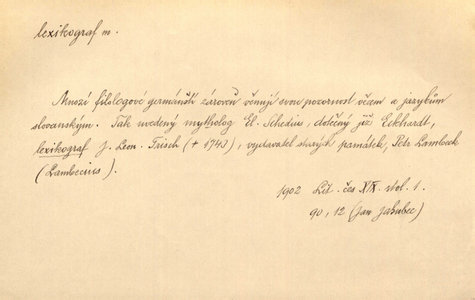 lexikograf m.
Mnozí filologové germánští zároveň věnují svou pozornost věcem a jazykům
slovanským. Tak uvedený mytholog El. Schedius, dotčený již Eckhardt,
lexikograf J. Leon. Frisch († 1743), vydavatel starých památek, Petr Lambeck
(Lambecius).
1902 Lit. čes XIX. stol. 1.
90, 12 (Jan Jakubec)